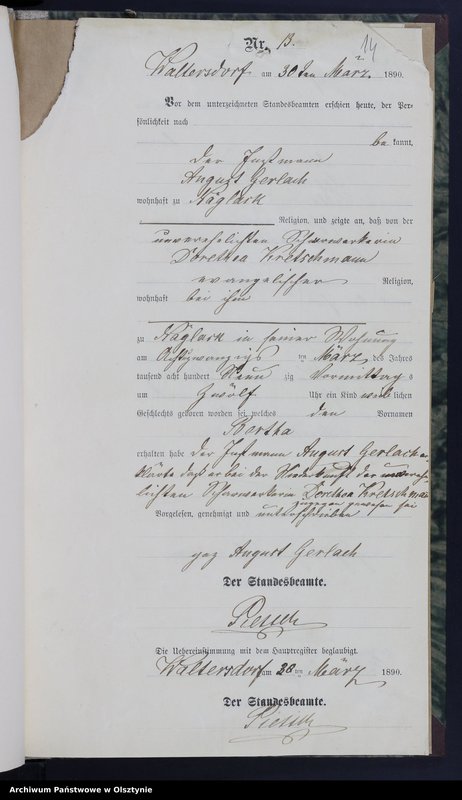 14
Nr. 13.
Waltersdorf am 30ten März 1890.
Vor dem unterzeichneten Standesbeamten erschien heute, der Per-
sönlichkeit nach
be kannt,
der Instmann
August Gerlach
wohnhaft zu Käglack
Religion, und zeigte an, daß von der
unverehelichten Scharwerkerin
Dorothea Kretschmann
evangelischer Religion,
wohnhaft bei ihm
zu Käglack in seiner Wohnung
am Achtzwanzigs ten März des Jahres
tausend acht hundert Neun zig Vormittag s
um Zwölf Uhr ein Kind weib lichen
Geschlechts geboren worden sei, welches den Vornamen
Bertha
erhalten habe der Instmann August Gerlach er-
klärte daß er bei der Niederkunft der unvereh-
lichten Scharwerkerin Dorothea Kretschmann
zugegen gewesen sei
Vorgelesen, genehmigt und unterschrieben
gez August Gerlach
Der Standesbeamte.
Die Uebereinstimmung mit dem Hauptregister beglaubigt.
Waltersdorf am 30 ten März 1890.
Der Standesbeamte.
Archiwum Państwowe w Olsztynie